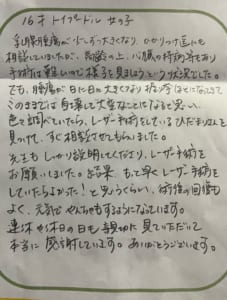 16才 トイプードル 女の子
乳腺腫瘍が少しずつ大きくなり、かかりつけ医にも
相談していましたが、高齢の上、心臓の持病等あり
手術は難しいので様子を見ましょうという状況でした。
でも、腫瘍が日に日に大きくなり
このままでは自壊して大変なことになると思い、
色々調べていたら、レーザー手術をしているひだまりさんを
見つけて、すぐ相談させてもらいました。
先生もしっかり説明してくださり、レーザー手術を
お願いしました。結果、もっと早くレーザー手術を
していたらよかった！と思うくらい、術後の回復も
よく、元気で するようになっています。
連休や休日の日も親切に見ていただいて
本当に感謝しています。ありがとうございます。